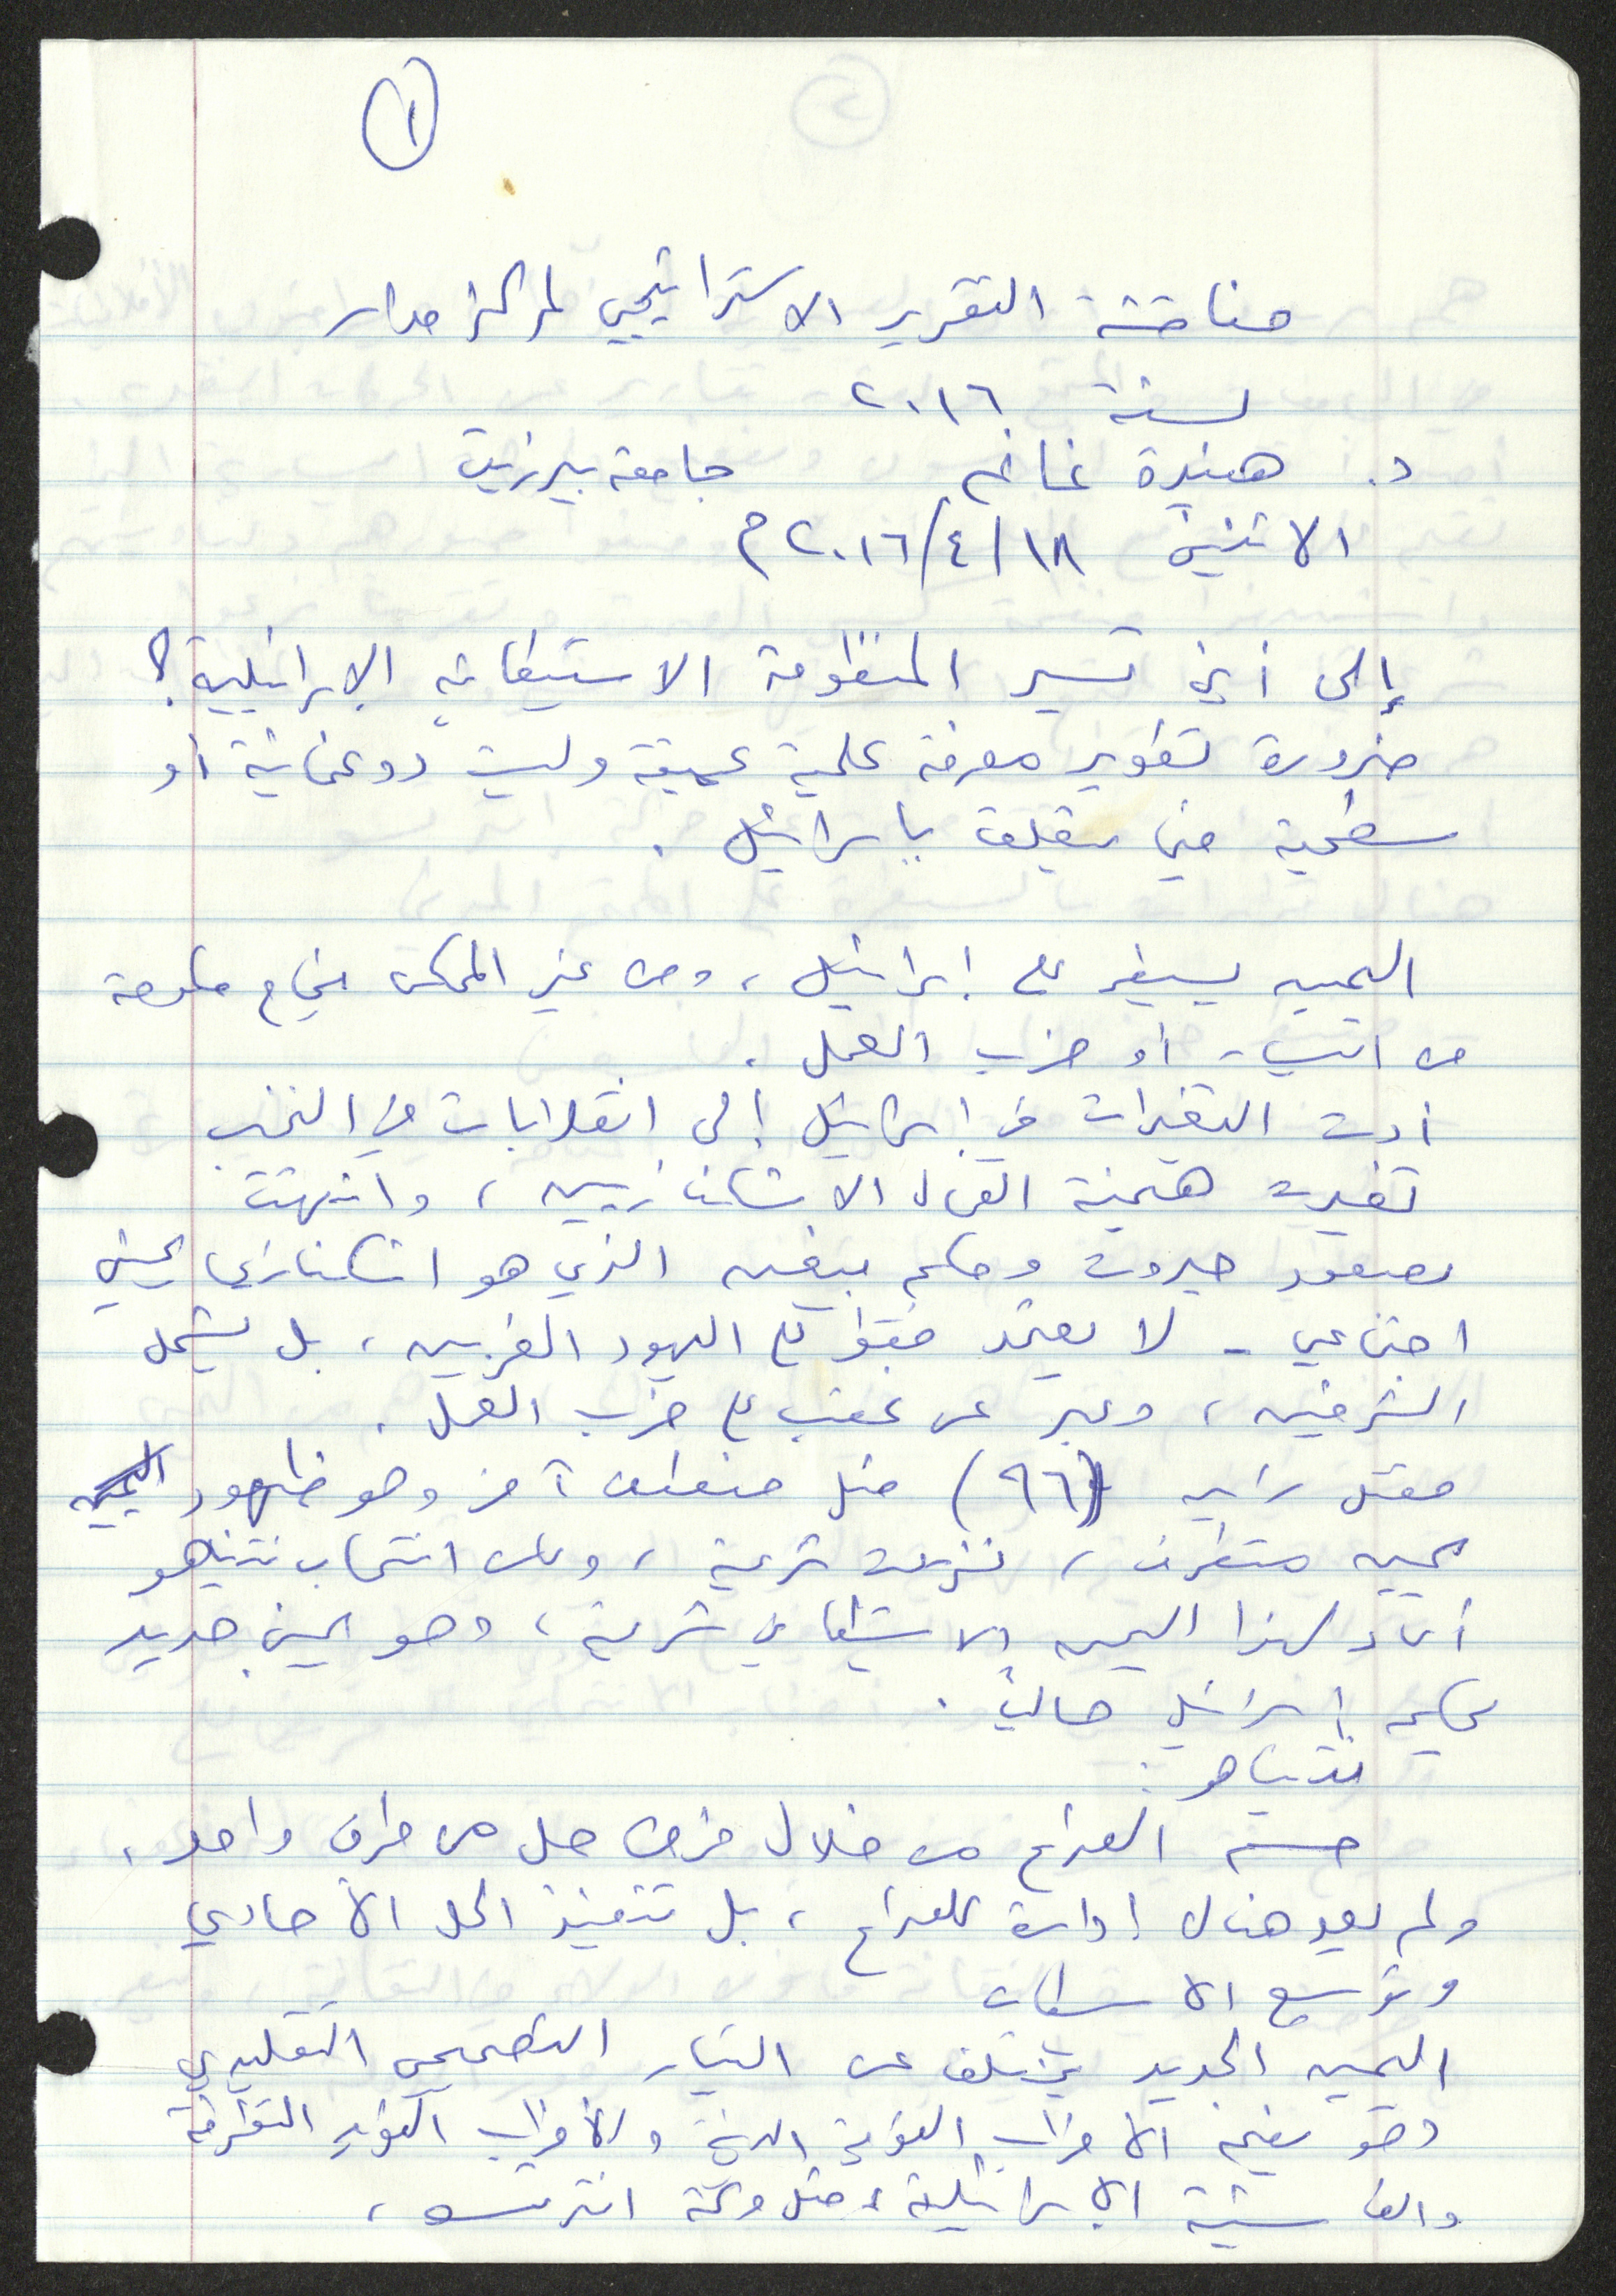 ١
مناقشة التقرير الاستراتيجي لمركز مدار
لسنة ٢٠١٦
د. هنيدة غانم جامعة بيرزيت
الاثنين ١٨/٤/٢٠١٦م
إلى أين تسير المنظومة الاستيطانية الإسرائيلية؟
ضرورة تطوير معرفة علمية عميقة وليست دوغمائية أو
سطحية فيما يتعلق بإسرائيل.
اليمين يسيطر على إسرائيل، ومن غير الممكن نجاح حكومة
من اليسار أو حزب العمل.
أدت التغيرات في إسرائيل إلى انقلابات في النخب
تغيرت هيمنة العمال الاشكنازيين، وانتهت
بصعود حيروت وحكم بيغن الذي هو اشكنازي يميني
اجتماعي - لا يعتمد فقط على اليهود الغربيين، بل يشمل
الشرقيين، وعبر عن غضب على حزب العمل.
مقتل رابين (٩٦) مثل منعطف آخر وهو ظهور اليمين
يمين متطرف، نزعت شرعية، ولكن انتخاب نتنياهو
أعاد لهذا اليمين الاستيطاني شرعية، وهو يمين جديد
يحكم إسرائيل حالياً.
نتنياهو:
حسم الصراع من خلال فرض حل من طرف واحد،
ولم يعد هناك إدارة للصراع، بل تنفيذ الحل الأحادي
وتوسيع الاستيطان
اليمين الجديد يختلف عن التيار التصحيحي التقليدي
وهو يضم الأحزاب القومية الدينية والأحزاب القومية المتطرفة
والفاشية الإسرائيلية، مثل حركة ام ترتسو،